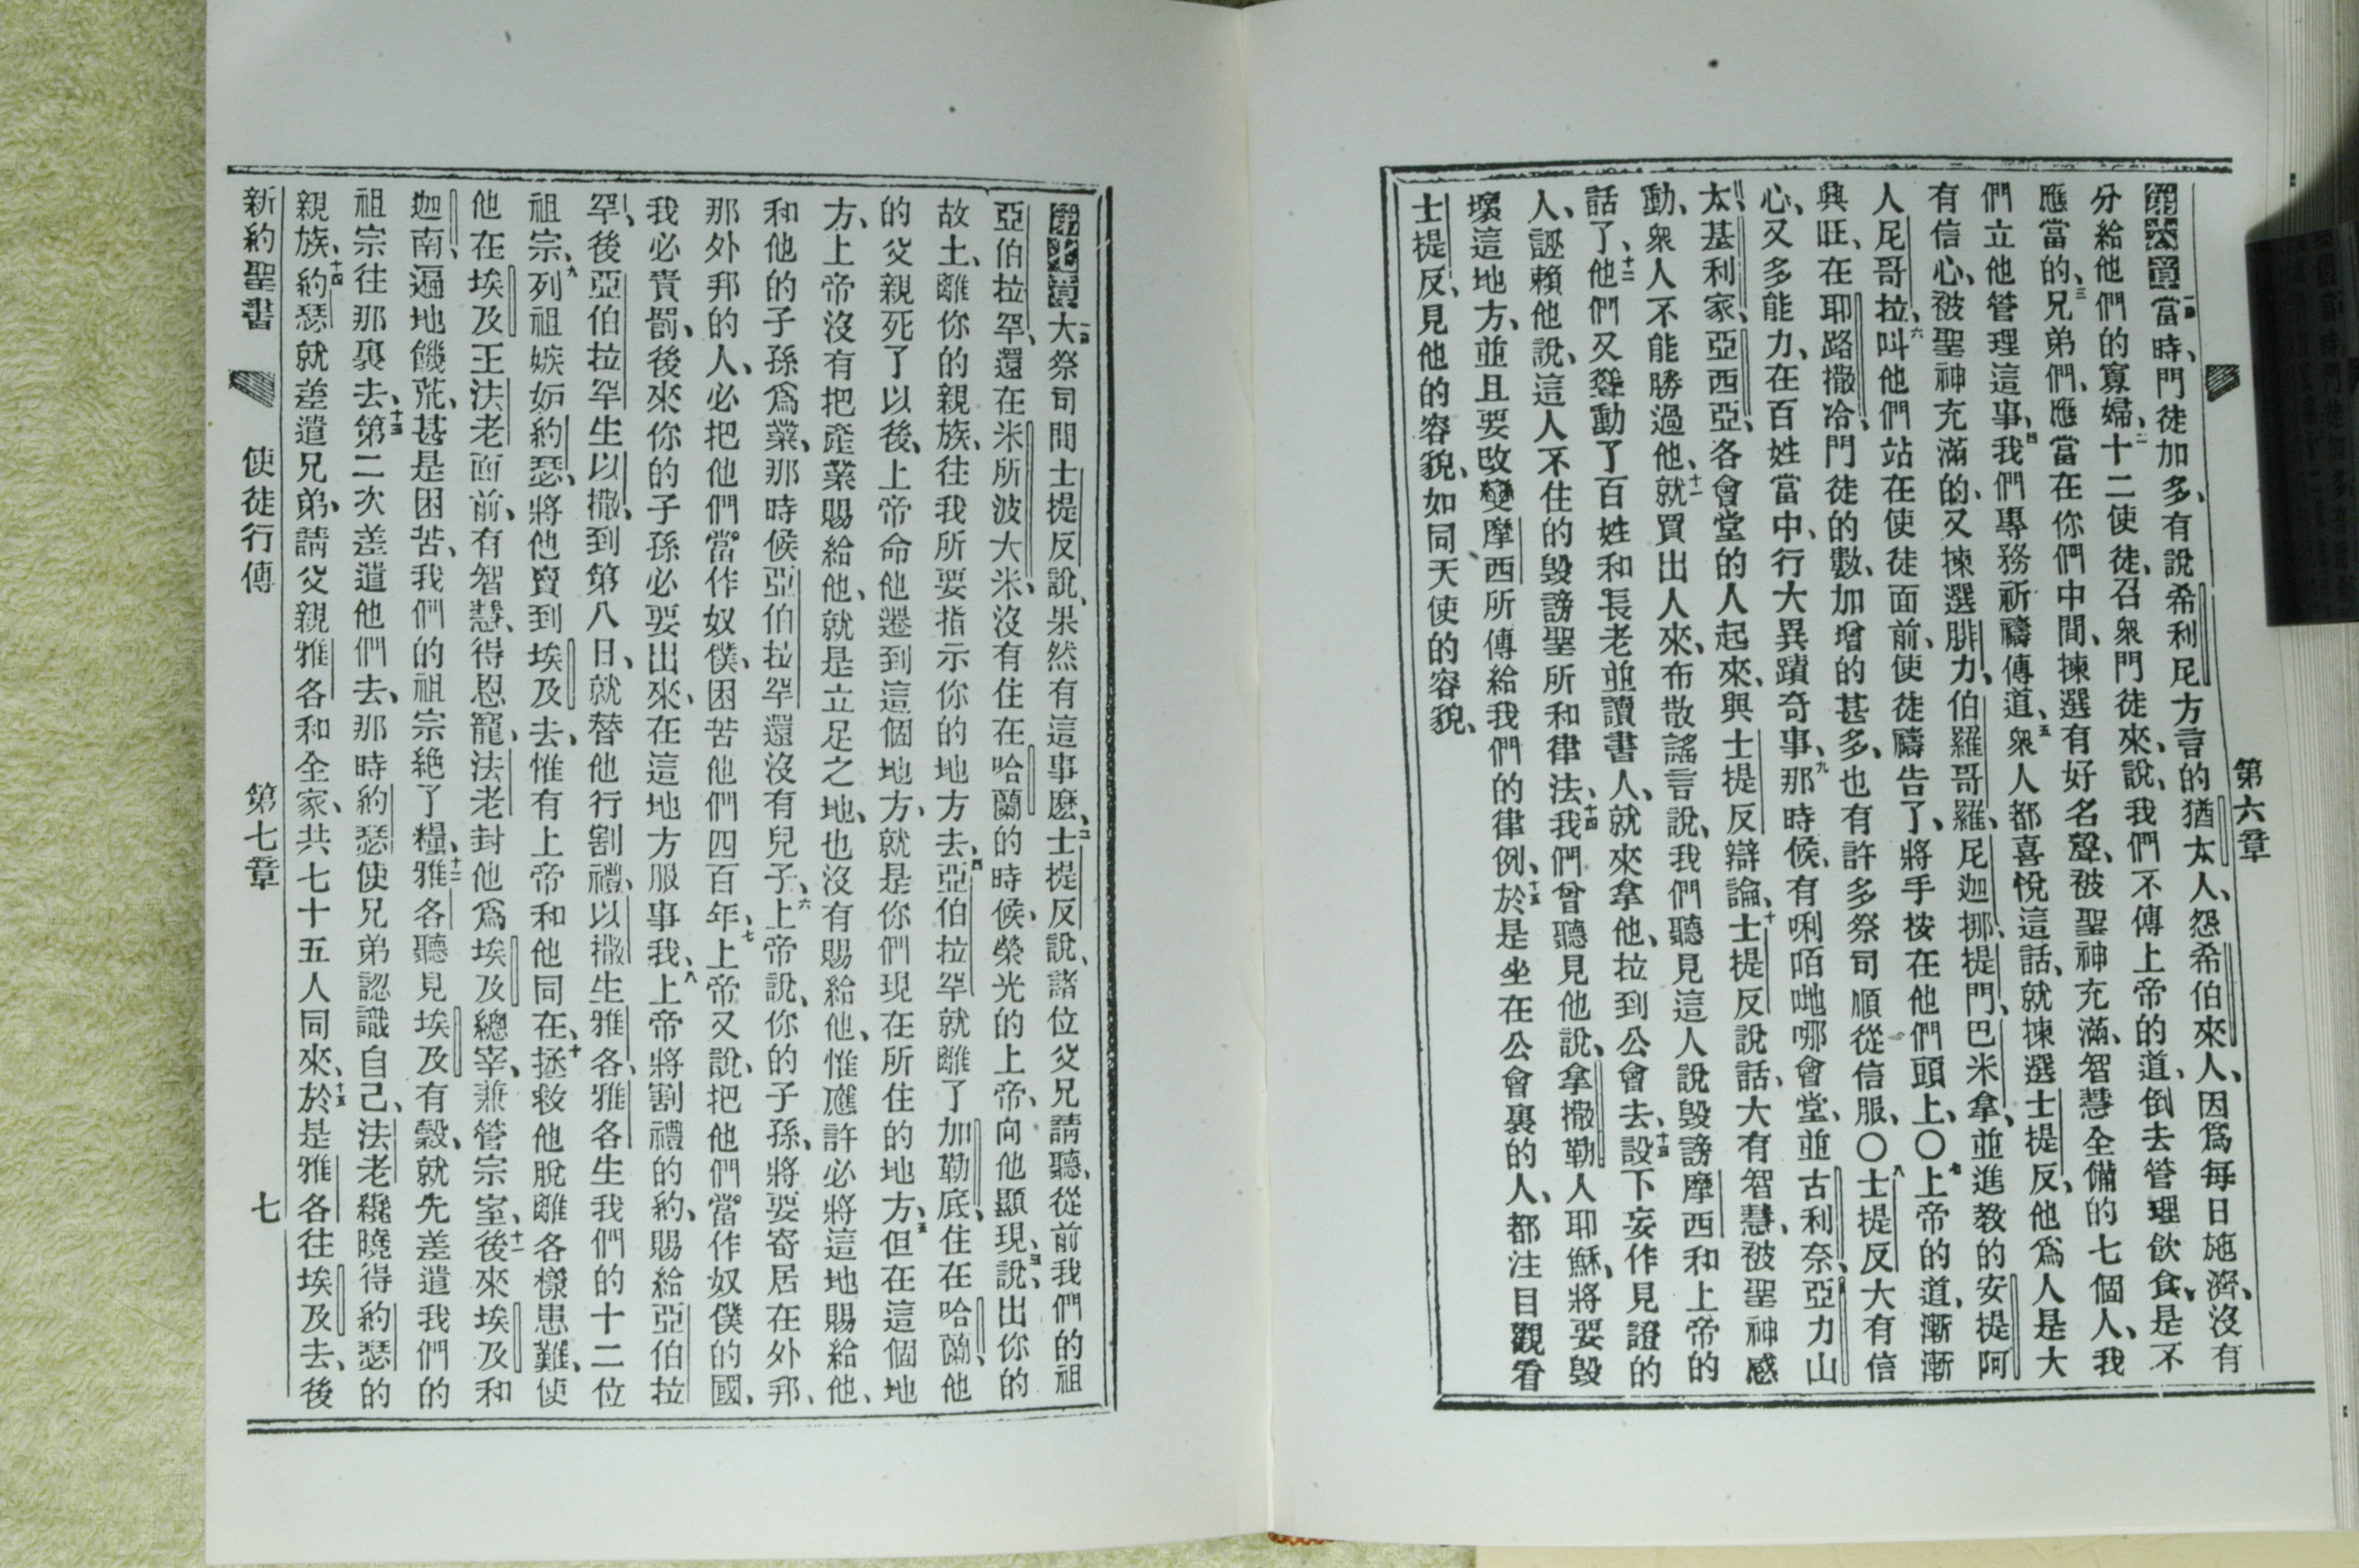 第六章
第六章當時、門徒加多、有說希利尼方言的猶太人、怨希伯來人、因爲每日施濟、沒有
分給他們的寡婦、二十二使徒、召衆門徒來、說、我們不傳上帝的道、倒去管理飮食、是不
應當的、三兄弟們、應當在你們中間、揀選有好名聲、被聖神充滿、智慧全備的七個人、我
們立他管理這事、四我們專務祈禱傳道、五衆人都喜悅這話、就揀選士提反、他爲人是大
有信心、被聖神充滿的、又揀選腓力、伯羅哥羅、尼迦挪、提門、巴米拿、並進敎的安提阿
人尼哥拉、六叫他們站在使徒面前、使徒禱告了、將手按在他們頭上、〇七上帝的道、漸漸
興旺、在耶路撒冷、門徒的數、加增的甚多、也有許多祭司順從信服、〇八士提反大有信
心、又多能力、在百姓當中、行大異蹟奇事、九那時候、有唎咟哋哪會堂、並古利奈、亞力山
太、基利家、亞西亞、各會堂的人起來、與士提反辯論、十士提反說話、大有智慧、被聖神感
動、衆人不能勝過他、十一就買出人來、布散謠言說、我們聽見這人說毀謗摩西和上帝的
話了、十二他們又聳動了百姓和長老並讀書人、就來拿他、拉到公會去、十三設下妄作見證的
人、誣賴他說、這人不住的毀謗聖所和律法、十四我們曾聽見他說、拿撒勒人耶穌、將要毀
壞這地方、並且要改變摩西所傳給我們的律例、十五於是坐在公會裏的人、都注目觀看
士提反、見他的容貌、如同天使的容貌、
第七章一大祭司問士提反說、果然有這事麽、二士提反說、諸位父兄請聽、從前我們的祖
亞伯拉罕、還在米所波大米、沒有住在哈蘭的時候、榮光的上帝、向他顯現、三說、出你的
故土、離你的親族、往我所要指示你的地方去、四亞伯拉罕就離了加勒底、住在哈蘭、他
的父親死了以後、上帝命他遷到這個地方、就是你們現在所住的地方、五但在這個地
方、上帝沒有把產業賜給他、就是立足之地、也沒有賜給他、惟應許必將這地賜給他、
和他的子孫爲業、那時候亞伯拉罕還沒有兒子、六上帝說、你的子孫、將要寄居在外邦、
那外邦的人、必把他們當作奴僕、困苦他們四百年、七上帝又說、把他們當作奴僕的國、
我必責罰、後來你的子孫必要出來、在這地方服事我、八上帝將割禮的約、賜給亞伯拉
罕、後亞伯拉罕生以撒、到第八日、就替他行割禮、以撒生雅各、雅各生我們的十二位
祖宗、九列祖嫉妬約瑟、將他賣到埃及去、惟有上帝和他同在、十拯救他脫離各樣患難、使
他在埃及王法老面前、有智慧、得恩寵、法老封他爲埃及總宰、兼管宗室、十一後來埃及和
迦南、遍地饑荒、甚是困苦、我們的祖宗絕了糧、十二雅各聽見埃及有穀、就先差遣我們的
祖宗往那裏去、十三第二次差遣他們去、那時約瑟使兄弟認識自己、法老纔曉得約瑟的
親族、十四約瑟就差遣兄弟、請父親雅各和全家、共七十五人同來、十五於是雅各往埃及去、後
新約聖書 使徒行傳 第七章 七